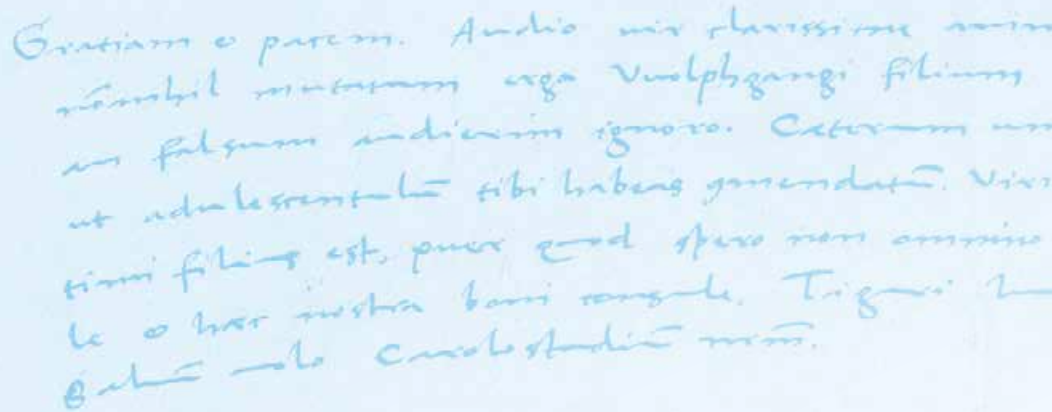 Gratiam & pacem. Audio vir clarissime anim
nōnnihil mutatam erga Vuolphgangi filium
an falsum audierim ignoro. Cæterum un
ut adulescentulū tibi habeas ꝯmendatū. Viri
timi filius est, puer quod spero non omnino
le & hæc nostra boni consule. Tiguri
Saluū uolo Carolostadiū nr̄m.